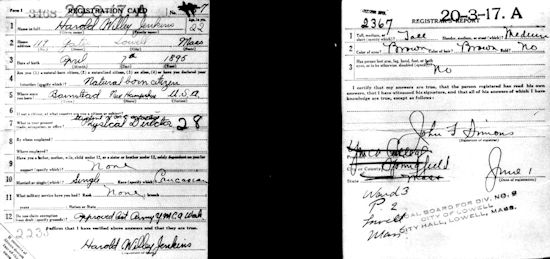 Form 1
REGISTRATION CARD
1 Name in full Harold Willey Jenkins
Age, in yrs. 22
2 address Lowell Mass
3 Date of birth April 1895
4 Are you (1) a natural-born citizen, (2) a naturalized citizen, (3) an alien, (4) or have you declared your
intention (specify which)? Natural born citizen
5 Where were you born? Barnstead New Hampshire U.S.A.
6 If not a citizen, of what country are you a citizen or subject?
7 What is your present trade, occupation, or office? Physical Director 28
8 By whom employed?
Where employed?
9 Have you a father, mother, wife, child under 12, or a sister or brother under 12, solely dependent on you for
support (specify which)? None
10 Married or single (which)? Single Race (specify which)? Caucasian
11 What military service have you had? Rank None branch
years Nation or State
12 Do you claim exemption from draft (specify grounds)? Army YMCA Work
I affirm that I have verified above answers and that they are true.
Harold Willey Jenkins
2367
20-3-17. A
REGISTRAR'S REPORT
1 Tall, medium, or short (specify which)? Tall Slender, medium, or stout (which)? Medium
2 Color of eyes? Brown Color of hair? Brown Bald? No
3 Has person lost arm, leg, hand, foot, or both
eyes, or is he otherwise disabled (specify)?
No
I certify that my answers are true, that the person registered has read his own
answers, that I have witnessed his signature, and that all of his answers of which I have
knowledge are true, except as follows:
John F Simons
(Signature of registrar)
Springfield
State Mass
June 1
(Date of registration)
Ward 3
P 2
Lowell
Mass
LOCAL BOARD FOR DIV. NO. 2
CITY OF LOWELL
CITY HALL, LOWELL, MASS.